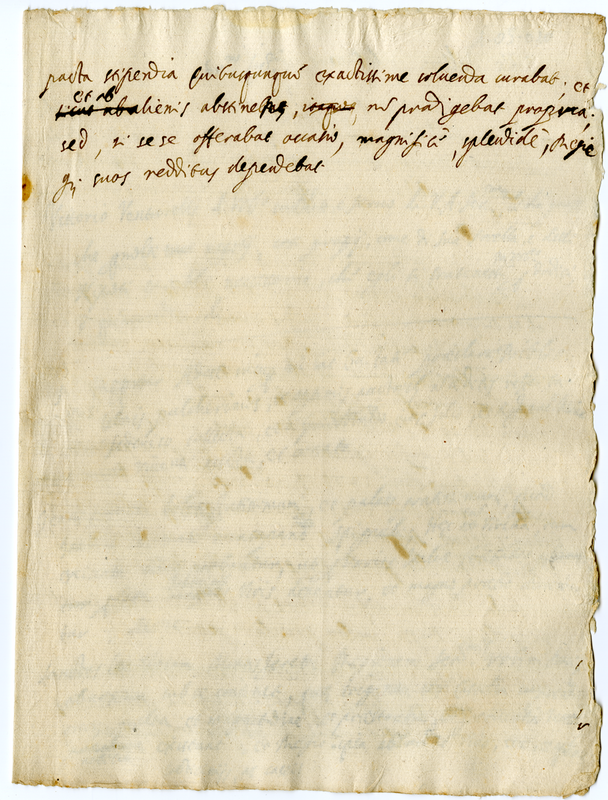 pacta stipendia quibuscunque exactissime soluenda curabat; et
et ab
sicut ab alienis abstinens, itaque, nõ prodigebat propria;
sed, si sese offerabat occasio, magnificè, splendidè,
suos redditus dependebat